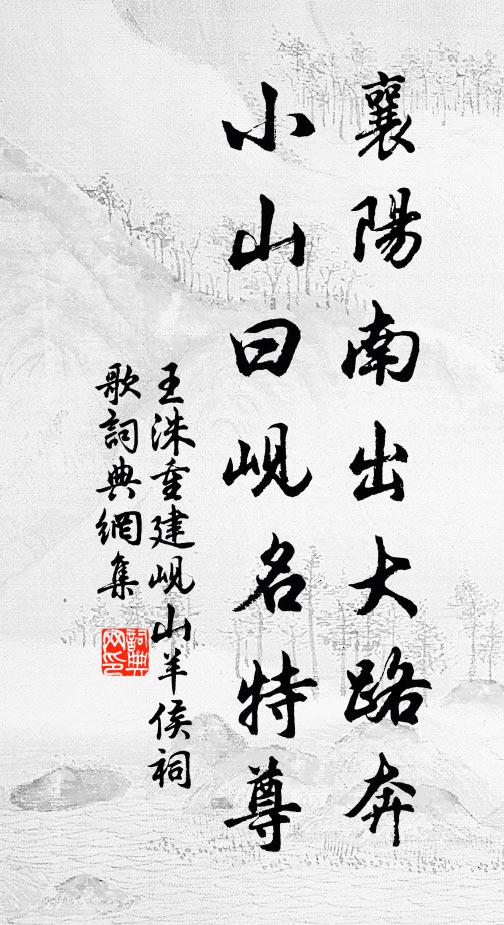 襄陽南出大路奔
小山曰峴名特尊
王洙重建峴山羊侯祠
歌詞典網集
詞典網印